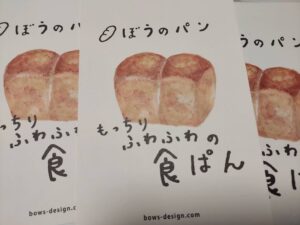 ぼうのパン
もっちり
ふわふわの
食ぱん
bows-design.com
ぼうのパン
っちり
ふわふわ
食
bows-design.com